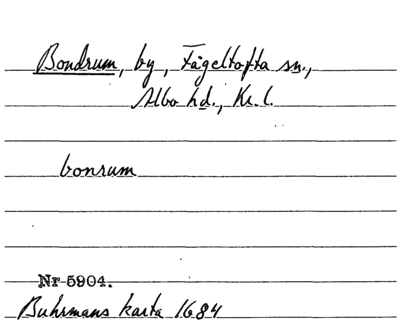 Bondrum, by, Fågeltofta sn.,
Albo hd., Kr. l.
bonrum
Nr 5904.
Buhrmans karta 1684